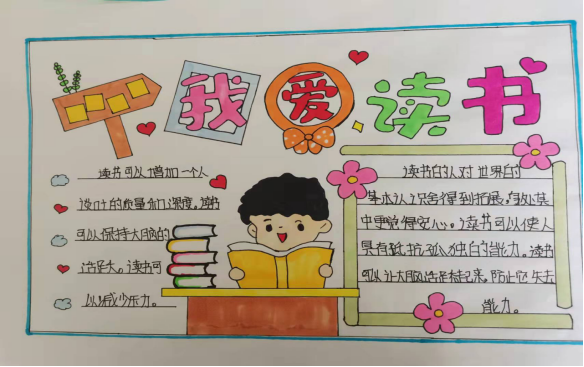 我爱读书
读书可以增加一个人
设计的质量和深度。读书
可以保持大脑的
活。读书可
以减少压力。
读书的人对世界的
基本认识会得到拓展,
中更觉得安心。读书可以使人
具有抵抗孤独的能力。读书
可以让大脑活起来,防止它失去
能力。